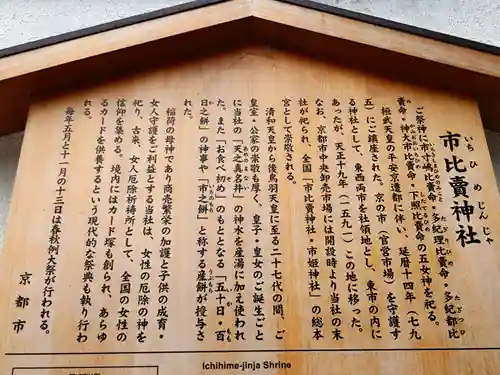 いちひめじんじゃ
市比賣神社
ご祭神に市寸嶋比賣命・多紀理比賣命・多紀都比
賣命・神大市比賣命・下照比賣命の五女神を祀る。
桓武天皇の平安京遷都に伴い、延暦十四年(七九
五)にご鎮座された。京の市(官営市場)を守護す
る神社として、東西両市を社領地とし、東市の内に
あったが、天正十九年(一五九一)この地に移った。
なお、京都市中央卸売市場には開設時より当社の末
社が祀られ、全国「市比賣神社・市姫神社」の総本
宮として崇敬される。
清和天皇から後鳥羽天皇に至る二十七代の間、ご
皇室・公家の崇敬も厚く、皇子・皇女のご誕生ごと
に当社の「天之真名井」の神水を産湯に加え使われ
た。また「お食い初め」のもととなる「五十日・百
日之餅」の神事や「市之餅」と称する産餅が授与さ
れた。
稲荷の母神であり商売繁栄の加護と子供の成育・
女人守護をご利益とする当社は、女性の厄除の神を
祀り、古来、女人厄除祈祷所として、全国の女性の
信仰を集める。境内にはカード塚も創られ、あらゆ
るカードを供養するという現代的な祭典も執り行わ
れる。
毎年五月と十一月の十三日は春秋例大祭が行われる。
京都市
Ichihime-jinja Shrine